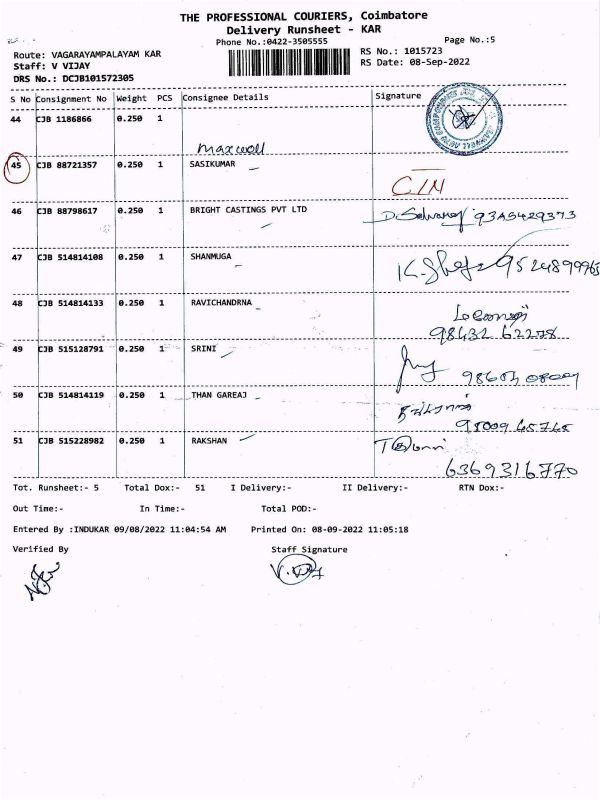 THE PROFESSIONAL COURIERS, Coimbatore
Delivery Runsheet - KAR
Phone No.:0422-3505555
Page No.:5
Route: VAGARAYAMPALAYAM KAR
RS No.: 1015723
Staff: V VIJAY
RS Date: 08-Sep-2022
DRS No.: DCJB101572305
S No Consignment No Weight PCS Consignee Details Signature
44 CJB 1186866 0.250 1
Maxwell
45 CJB 88721357 0.250 1 SASIKUMAR
46 CJB 88798617 0.250 1 BRIGHT CASTINGS PVT LTD
47 CJB 514814108 0.250 1 SHANMUGA
48 CJB 514814133 0.250 1 RAVICHANDRNA
98432 62278
49 CJB 515128791 0.250 1 SRINI
50 CJB 514814119 0.250 1 THAN GAREAJ
51 CJB 515228982 0.250 1 RAKSHAN
6369316770
Tot. Runsheet:- 5 Total Dox:- 51 I Delivery:- II Delivery:- RTN Dox:-
Out Time:- In Time:- Total POD:-
Entered By :INDUKAR 09/08/2022 11:04:54 AM Printed On: 08-09-2022 11:05:18
Verified By Staff Signature